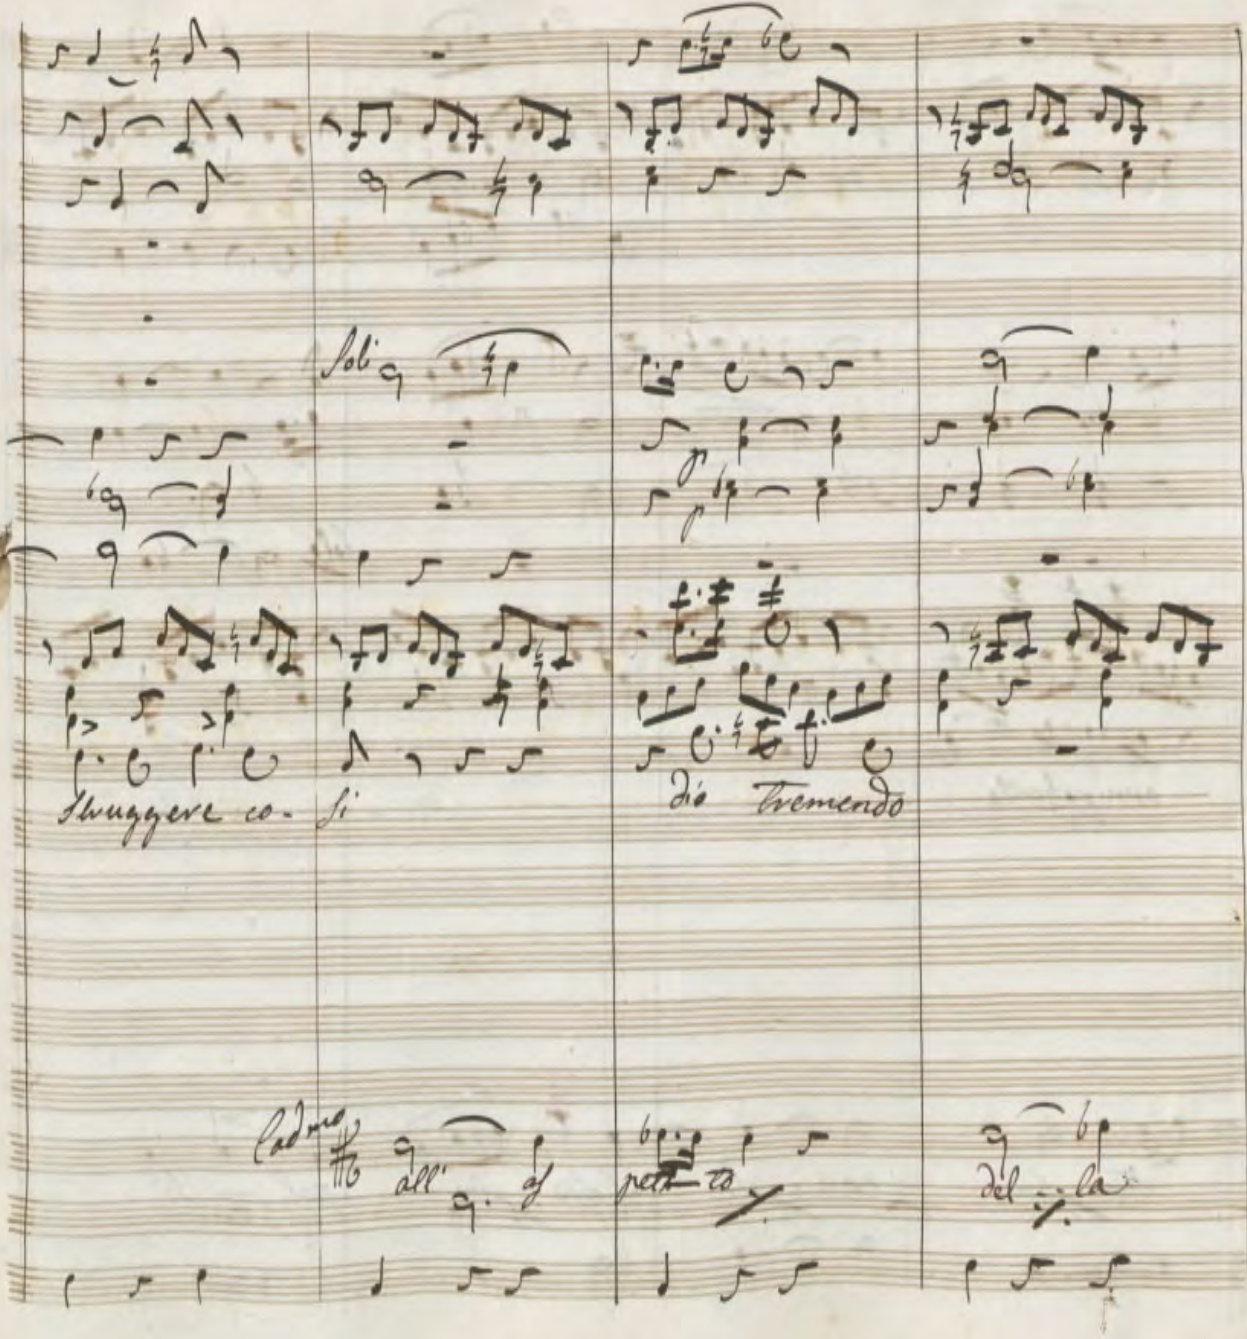 Soli
p
p
struggere co- si dio tremendo
Cadmo
all' as petto del la